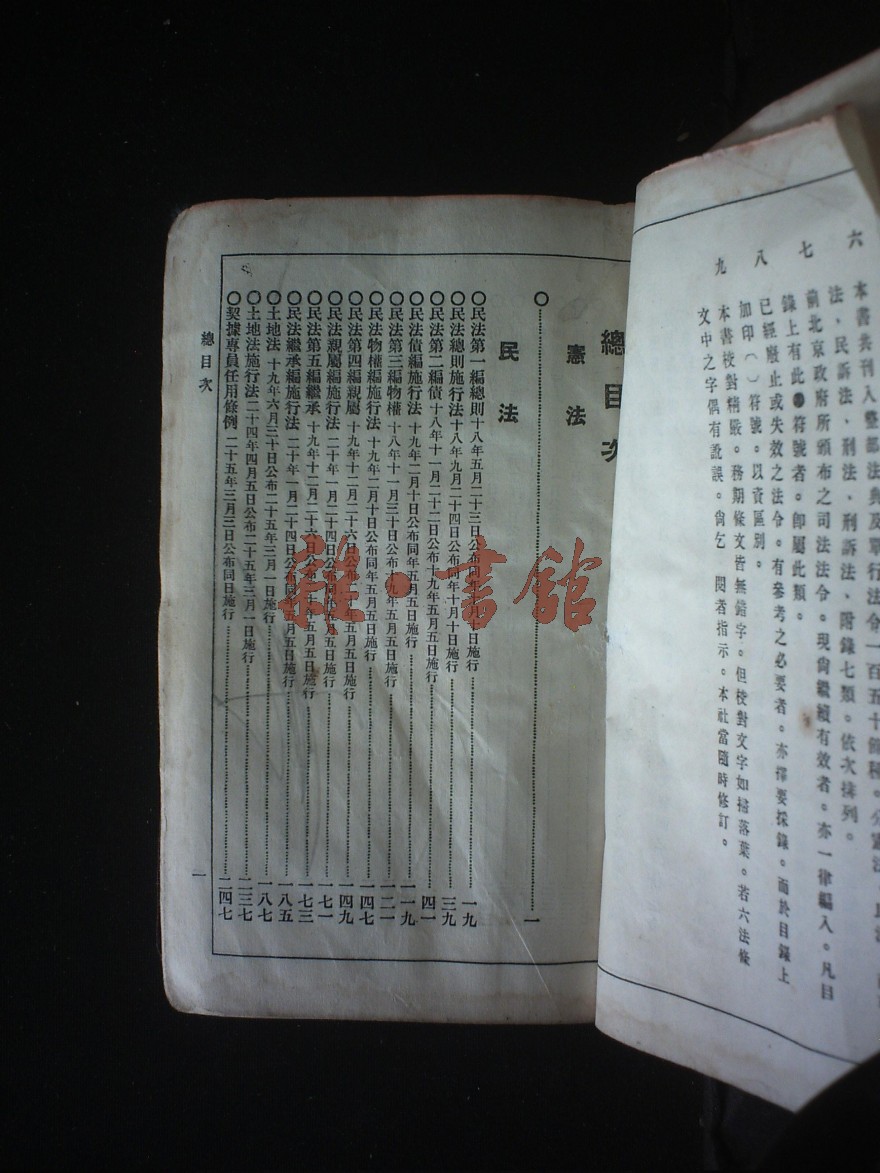 六
七
八
九
本書共刊入整部法典及單行法令一百五十餘種。分憲法、民
法、民訴法、刑法、刑訴法、附錄七類。依次排列。
前北京政府所頒布之司法法令。現尙繼續有效者。亦一律編入。凡目
錄上有此●符號者。卽屬此類。
已經廢止或失效之法令。有參考之必要者。亦擇要採錄。而於目錄上
加印（ ）符號。以資區別。
本書校對精嚴。務期條文皆無錯字。但校對文字如掃落葉。若六法條
文中之字偶有訛誤。尙乞 閱者指示。本社當隨時修訂。
總目次
憲法
〇……一
民法
〇民法第一編總則十八年五月二十三日公布同年十月十日施行……一九
〇民法總則施行法十八年九月二十四日公布同年十月十日施行……三九
〇民法第二編債十八年十一月二十二日公布十九年五月五日施行……四一
〇民法債編施行法十九年二月十日公布同年五月五日施行……一一九
〇民法第三編物權十八年十一月三十日公布十九年五月五日施行……一二一
〇民法物權編施行法十九年二月十日公布同年五月五日施行……一四七
〇民法第四編親屬十九年十二月二十六日公布二十年五月五日施行……一四九
〇民法親屬編施行法二十年一月二十四日公布同年五月五日施行……一七一
〇民法第五編繼承十九年十二月二十六日公布二十年五月五日施行……一七三
〇民法繼承編施行法二十年一月二十四日公布同年五月五日施行……一八五
〇土地法十九年六月三十日公布二十五年三月一日施行……一八七
〇土地法施行法二十四年四月五日公布二十五年三月一日施行……二三七
〇契據專員任用條例二十五年三月三日公布同日施行……二四七
總目次
一
雜·書館